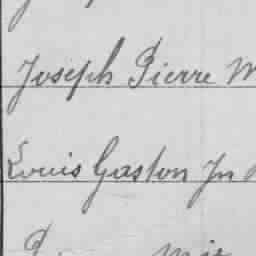 Joseph Pierre M
Louis Gaston Jn